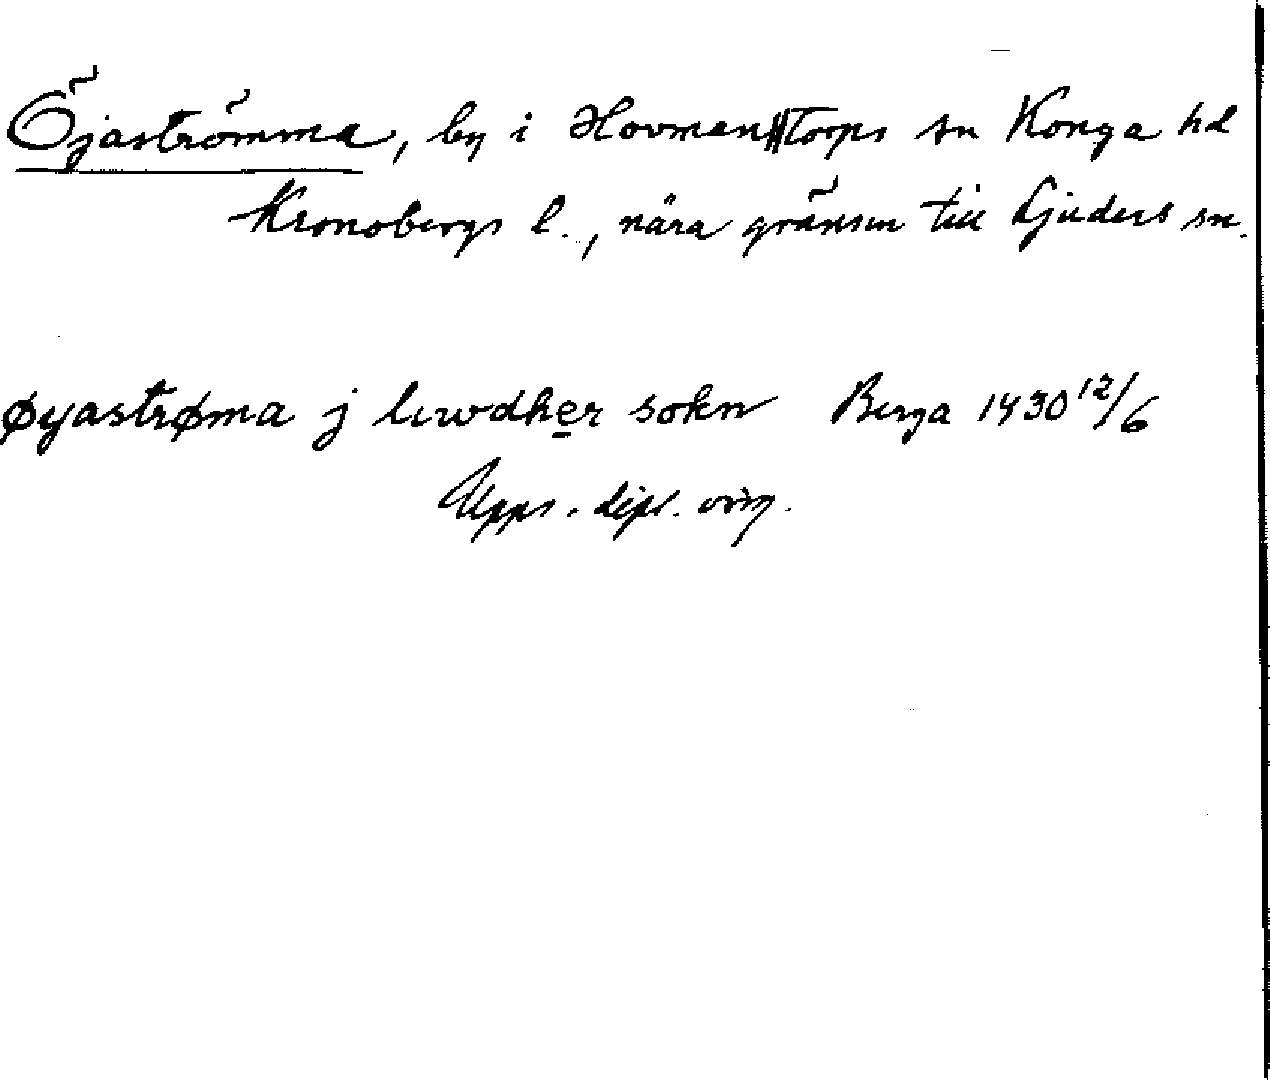 Öjaströmma, by i Hovmantorps sn Konga hd
Kronobergs l., nära gränsen till Ljuders sn.
øyastrøma j lewdher sokn Berga 1430 12/6
Upps. dipl. orig.